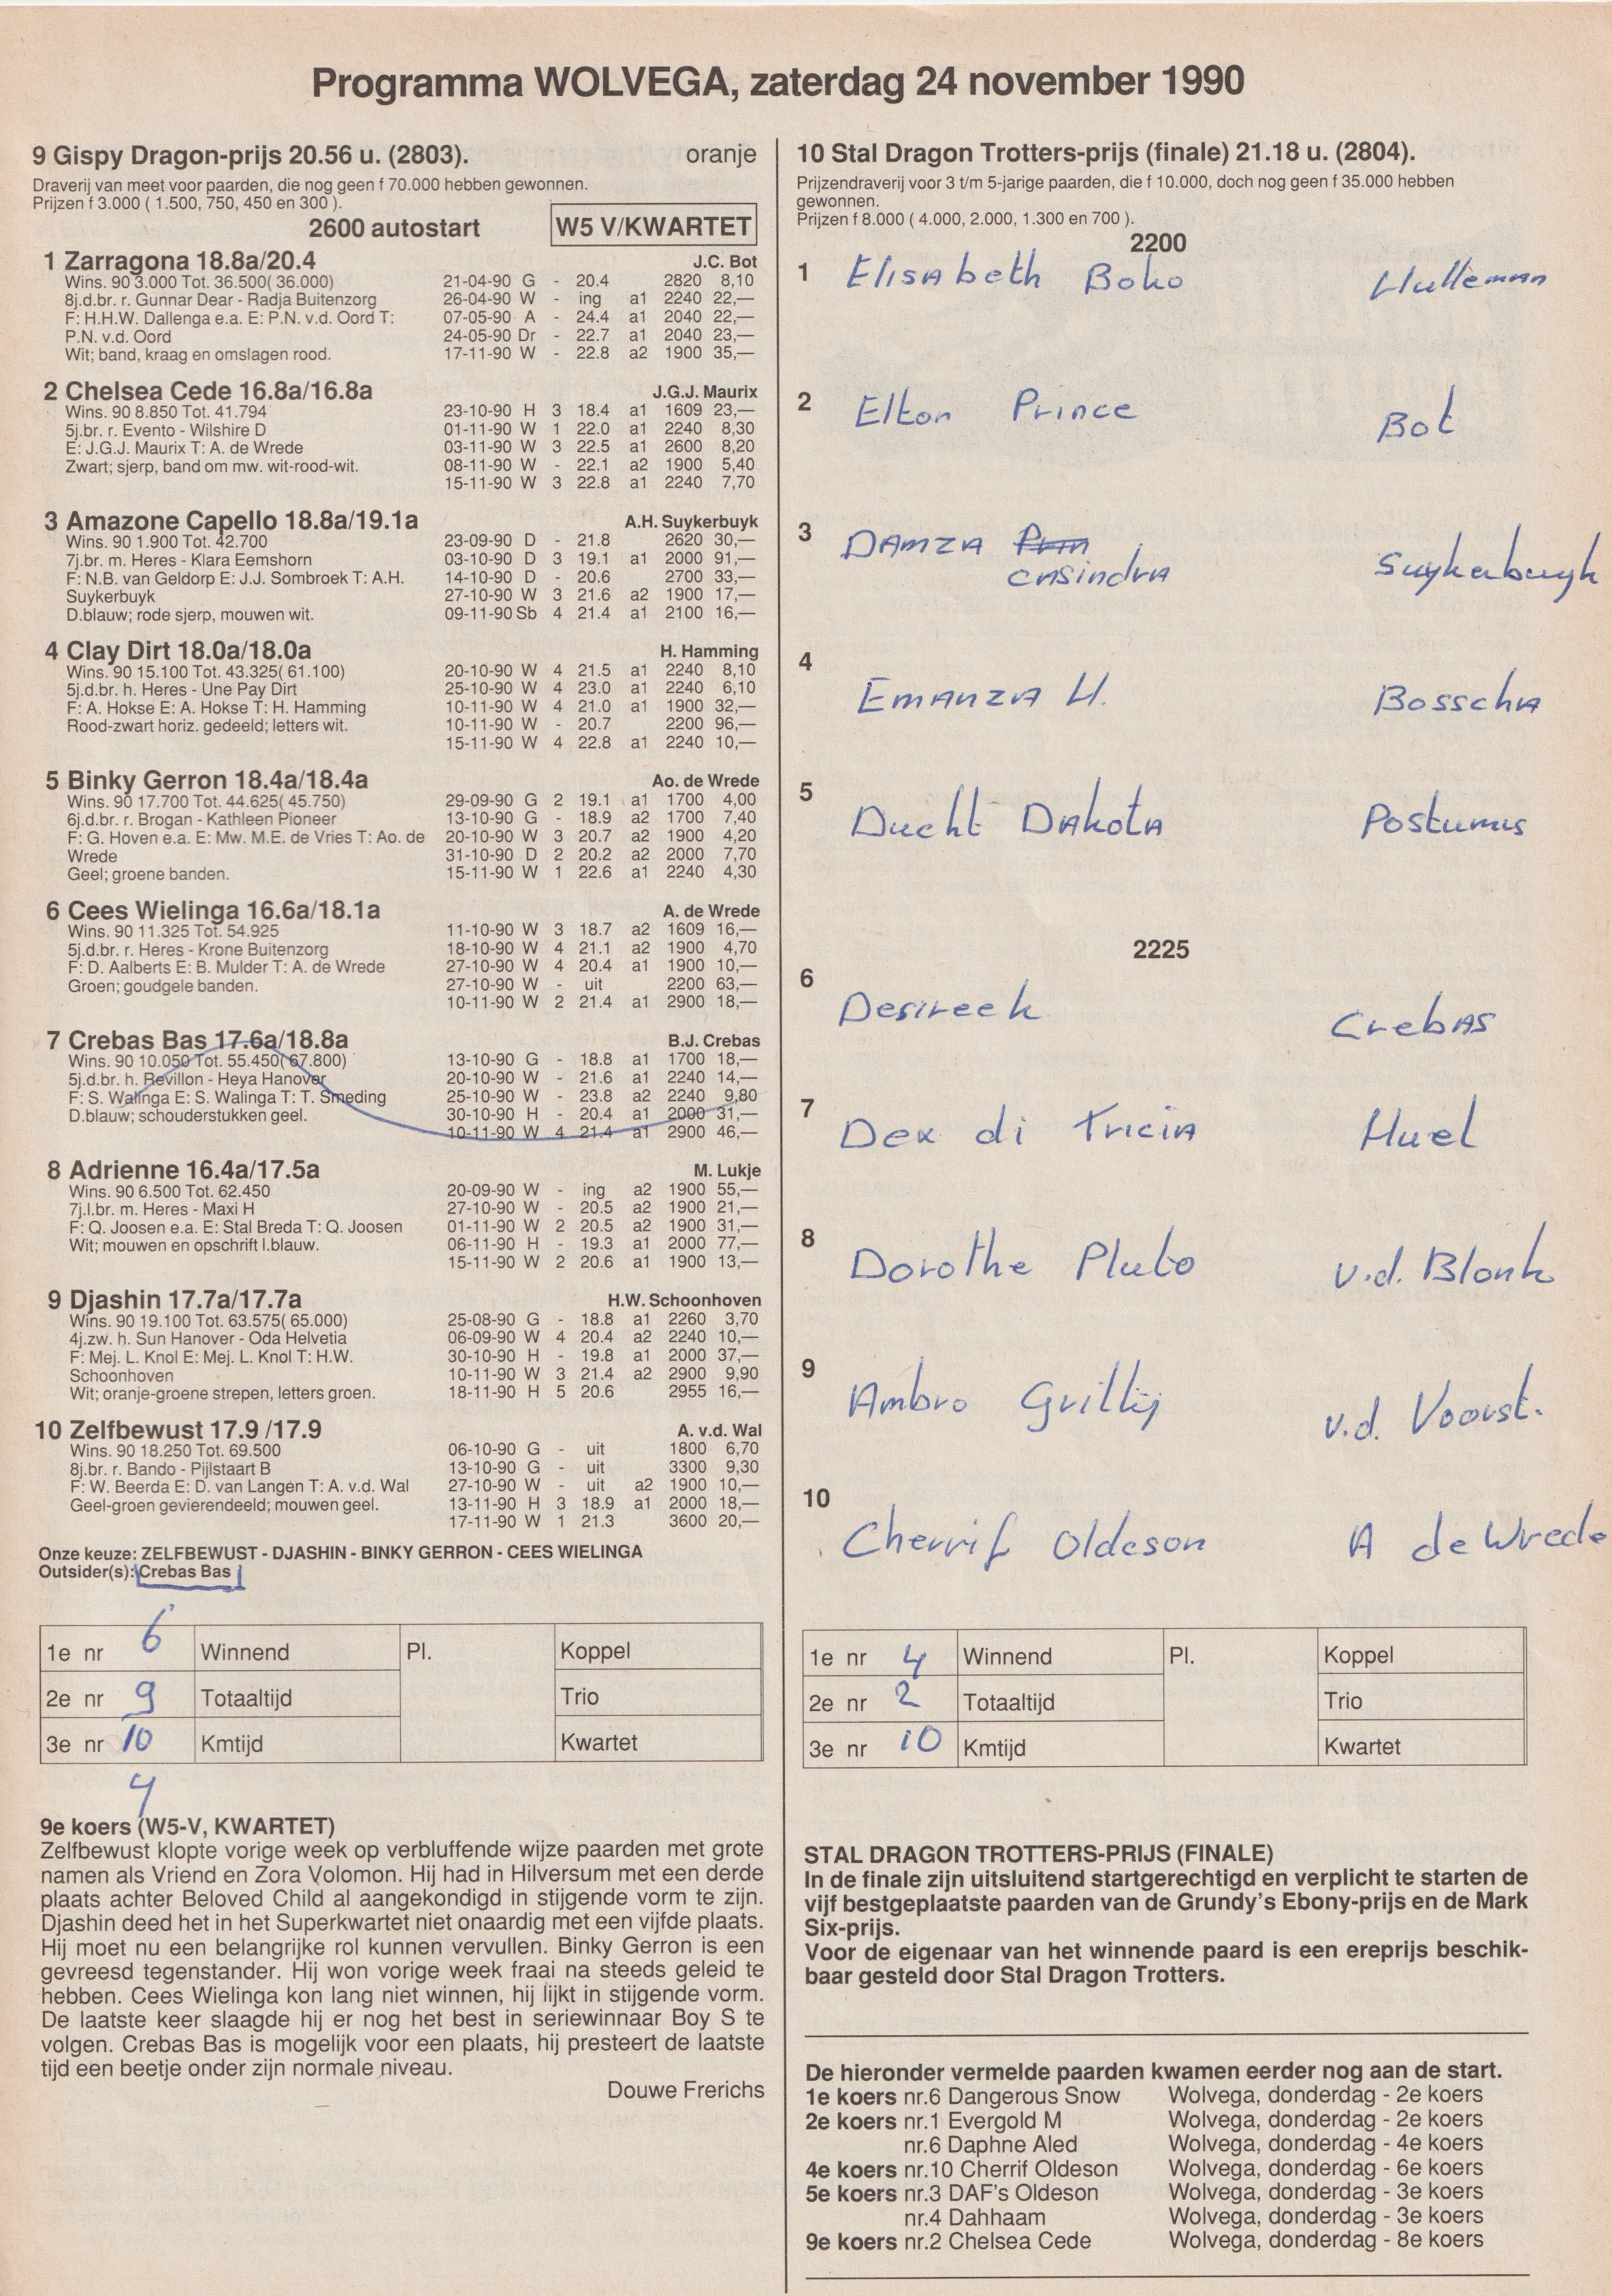 Programma WOLVEGA, zaterdag 24 november 1990
9 Gispy Dragon-prijs 20.56 u. (2803). oranje
Draverij van meet voor paarden, die nog geen f 70.000 hebben gewonnen.
Prijzen f 3.000 ( 1.500, 750, 450 en 300 ).
2600 autostart W5 V/KWARTET
1 Zarragona 18.8a/20.4 J.C. Bot
Wins. 90 3.000 Tot. 36.500( 36.000) 21-04-90 G - 20.4 2820 8,10
8j.d.br. r. Gunnar Dear - Radja Buitenzorg 26-04-90 W - ing a1 2240 22,—
F: H.H.W. Dallenga e.a. E: P.N. v.d. Oord T: 07-05-90 A - 24.4 a1 2040 22,—
P.N. v.d. Oord 24-05-90 Dr - 22.7 a1 2040 23,—
Wit; band, kraag en omslagen rood. 17-11-90 W - 22.8 a2 1900 35,—
2 Chelsea Cede 16.8a/16.8a J.G.J. Maurix
Wins. 90 8.850 Tot. 41.794 23-10-90 H 3 18.4 a1 1609 23,—
5j.br. r. Evento - Wilshire D 01-11-90 W 1 22.0 a1 2240 8,30
E: J.G.J. Maurix T: A. de Wrede 03-11-90 W 3 22.5 a1 2600 8,20
Zwart; sjerp, band om mw. wit-rood-wit. 08-11-90 W - 22.1 a2 1900 5,40
15-11-90 W 3 22.8 a1 2240 7,70
3 Amazone Capello 18.8a/19.1a A.H. Suykerbuyk
Wins. 90 1.900 Tot. 42.700 23-09-90 D - 21.8 2620 30,—
7j.br. m. Heres - Klara Eemshorn 03-10-90 D 3 19.1 a1 2000 91,—
F: N.B. van Geldorp E: J.J. Sombroek T: A.H. 14-10-90 D - 20.6 2700 33,—
Suykerbuyk 27-10-90 W 3 21.6 a2 1900 17,—
D.blauw; rode sjerp, mouwen wit. 09-11-90 Sb 4 21.4 a1 2100 16,—
4 Clay Dirt 18.0a/18.0a H. Hamming
Wins. 90 15.100 Tot. 43.325( 61.100) 20-10-90 W 4 21.5 a1 2240 8,10
5j.d.br. h. Heres - Une Pay Dirt 25-10-90 W 4 23.0 a1 2240 6,10
F: A. Hokse E: A. Hokse T: H. Hamming 10-11-90 W 4 21.0 a1 1900 32,—
Rood-zwart horiz. gedeeld; letters wit. 10-11-90 W - 20.7 2200 96,—
15-11-90 W 4 22.8 a1 2240 10,—
5 Binky Gerron 18.4a/18.4a Ao. de Wrede
Wins. 90 17.700 Tot. 44.625( 45.750) 29-09-90 G 2 19.1 a1 1700 4,00
6j.d.br. r. Brogan - Kathleen Pioneer 13-10-90 G - 18.9 a2 1700 7,40
F: G. Hoven e.a. E: Mw. M.E. de Vries T: Ao. de 20-10-90 W 3 20.7 a2 1900 4,20
Wrede 31-10-90 D 2 20.2 a2 2000 7,70
Geel; groene banden. 15-11-90 W 1 22.6 a1 2240 4,30
6 Cees Wielinga 16.6a/18.1a A. de Wrede
Wins. 90 11.325 Tot. 54.925 11-10-90 W 3 18.7 a2 1609 16,—
5j.d.br. r. Heres - Krone Buitenzorg 18-10-90 W 4 21.1 a2 1900 4,70
F: D. Aalberts E: B. Mulder T: A. de Wrede 27-10-90 W 4 20.4 a1 1900 10,—
Groen; goudgele banden. 27-10-90 W - uit 2200 63,—
10-11-90 W 2 21.4 a1 2900 18,—
7 Crebas Bas 17.6a/18.8a B.J. Crebas
Wins. 90 10.050 Tot. 55.450( 67.800) 13-10-90 G - 18.8 a1 1700 18,—
5j.d.br. h. Revillon - Heya Hanover 20-10-90 W - 21.6 a1 2240 14,—
F: S. Walinga E: S. Walinga T: T. Smeding 25-10-90 W - 23.8 a2 2240 9,80
D.blauw; schouderstukken geel. 30-10-90 H - 20.4 a1 2000 31,—
10-11-90 W 4 21.4 a1 2900 46,—
8 Adrienne 16.4a/17.5a M. Lukje
Wins. 90 6.500 Tot. 62.450 20-09-90 W - ing a2 1900 55,—
7j.l.br. m. Heres - Maxi H 27-10-90 W - 20.5 a2 1900 21,—
F: Q. Joosen e.a. E: Stal Breda T: Q. Joosen 01-11-90 W 2 20.5 a2 1900 31,—
Wit; mouwen en opschrift l.blauw. 06-11-90 H - 19.3 a1 2000 77,—
15-11-90 W 2 20.6 a1 1900 13,—
9 Djashin 17.7a/17.7a H.W. Schoonhoven
Wins. 90 19.100 Tot. 63.575( 65.000) 25-08-90 G - 18.8 a1 2260 3,70
4j.zw. h. Sun Hanover - Oda Helvetia 06-09-90 W 4 20.4 a2 2240 10,—
F: Mej. L. Knol E: Mej. L. Knol T: H.W. 30-10-90 H - 19.8 a1 2000 37,—
Schoonhoven 10-11-90 W 3 21.4 a2 2900 9,90
Wit; oranje-groene strepen, letters groen. 18-11-90 H 5 20.6 2955 16,—
10 Zelfbewust 17.9 /17.9 A. v.d. Wal
Wins. 90 18.250 Tot. 69.500 06-10-90 G - uit 1800 6,70
8j.br. r. Bando - Pijlstaart B 13-10-90 G - uit 3300 9,30
F: W. Beerda E: D. van Langen T: A. v.d. Wal 27-10-90 W - uit a2 1900 10,—
Geel-groen gevierendeeld; mouwen geel. 13-11-90 H 3 18.9 a1 2000 18,—
17-11-90 W 1 21.3 3600 20,—
Onze keuze: ZELFBEWUST - DJASHIN - BINKY GERRON - CEES WIELINGA
Outsider(s): Crebas Bas
1e nr 6 Winnend Pl. Koppel
2e nr 9 Totaaltijd Trio
3e nr 10 Kmtijd Kwartet
4
9e koers (W5-V, KWARTET)
Zelfbewust klopte vorige week op verbluffende wijze paarden met grote
namen als Vriend en Zora Volomon. Hij had in Hilversum met een derde
plaats achter Beloved Child al aangekondigd in stijgende vorm te zijn.
Djashin deed het in het Superkwartet niet onaardig met een vijfde plaats.
Hij moet nu een belangrijke rol kunnen vervullen. Binky Gerron is een
gevreesd tegenstander. Hij won vorige week fraai na steeds geleid te
hebben. Cees Wielinga kon lang niet winnen, hij lijkt in stijgende vorm.
De laatste keer slaagde hij er nog het best in seriewinnaar Boy S te
volgen. Crebas Bas is mogelijk voor een plaats, hij presteert de laatste
tijd een beetje onder zijn normale niveau.
Douwe Frerichs
10 Stal Dragon Trotters-prijs (finale) 21.18 u. (2804).
Prijzendraverij voor 3 t/m 5-jarige paarden, die f 10.000, doch nog geen f 35.000 hebben
gewonnen.
Prijzen f 8.000 ( 4.000, 2.000, 1.300 en 700 ).
2200
1 Elisabeth Boko Hulleman
2 Elton Prince Bot
3 Damza Prin Suykerbuyk
casindra
4 Emanza H. Bosscha
5 Ducht Dakota Postumus
2225
6 Desireek Crebas
7 Dex di Tricia Huel
8 Dorothe Pluto v.d. Blonk
9 Ambro Grillij v.d. Voorst.
10 Cherrif Oldeson A de Wrede
1e nr 4 Winnend Pl. Koppel
2e nr 2 Totaaltijd Trio
3e nr 10 Kmtijd Kwartet
STAL DRAGON TROTTERS-PRIJS (FINALE)
In de finale zijn uitsluitend startgerechtigd en verplicht te starten de
vijf bestgeplaatste paarden van de Grundy's Ebony-prijs en de Mark
Six-prijs.
Voor de eigenaar van het winnende paard is een ereprijs beschik-
baar gesteld door Stal Dragon Trotters.
De hieronder vermelde paarden kwamen eerder nog aan de start.
1e koers nr.6 Dangerous Snow Wolvega, donderdag - 2e koers
2e koers nr.1 Evergold M Wolvega, donderdag - 2e koers
nr.6 Daphne Aled Wolvega, donderdag - 4e koers
4e koers nr.10 Cherrif Oldeson Wolvega, donderdag - 6e koers
5e koers nr.3 DAF's Oldeson Wolvega, donderdag - 3e koers
nr.4 Dahhaam Wolvega, donderdag - 3e koers
9e koers nr.2 Chelsea Cede Wolvega, donderdag - 8e koers